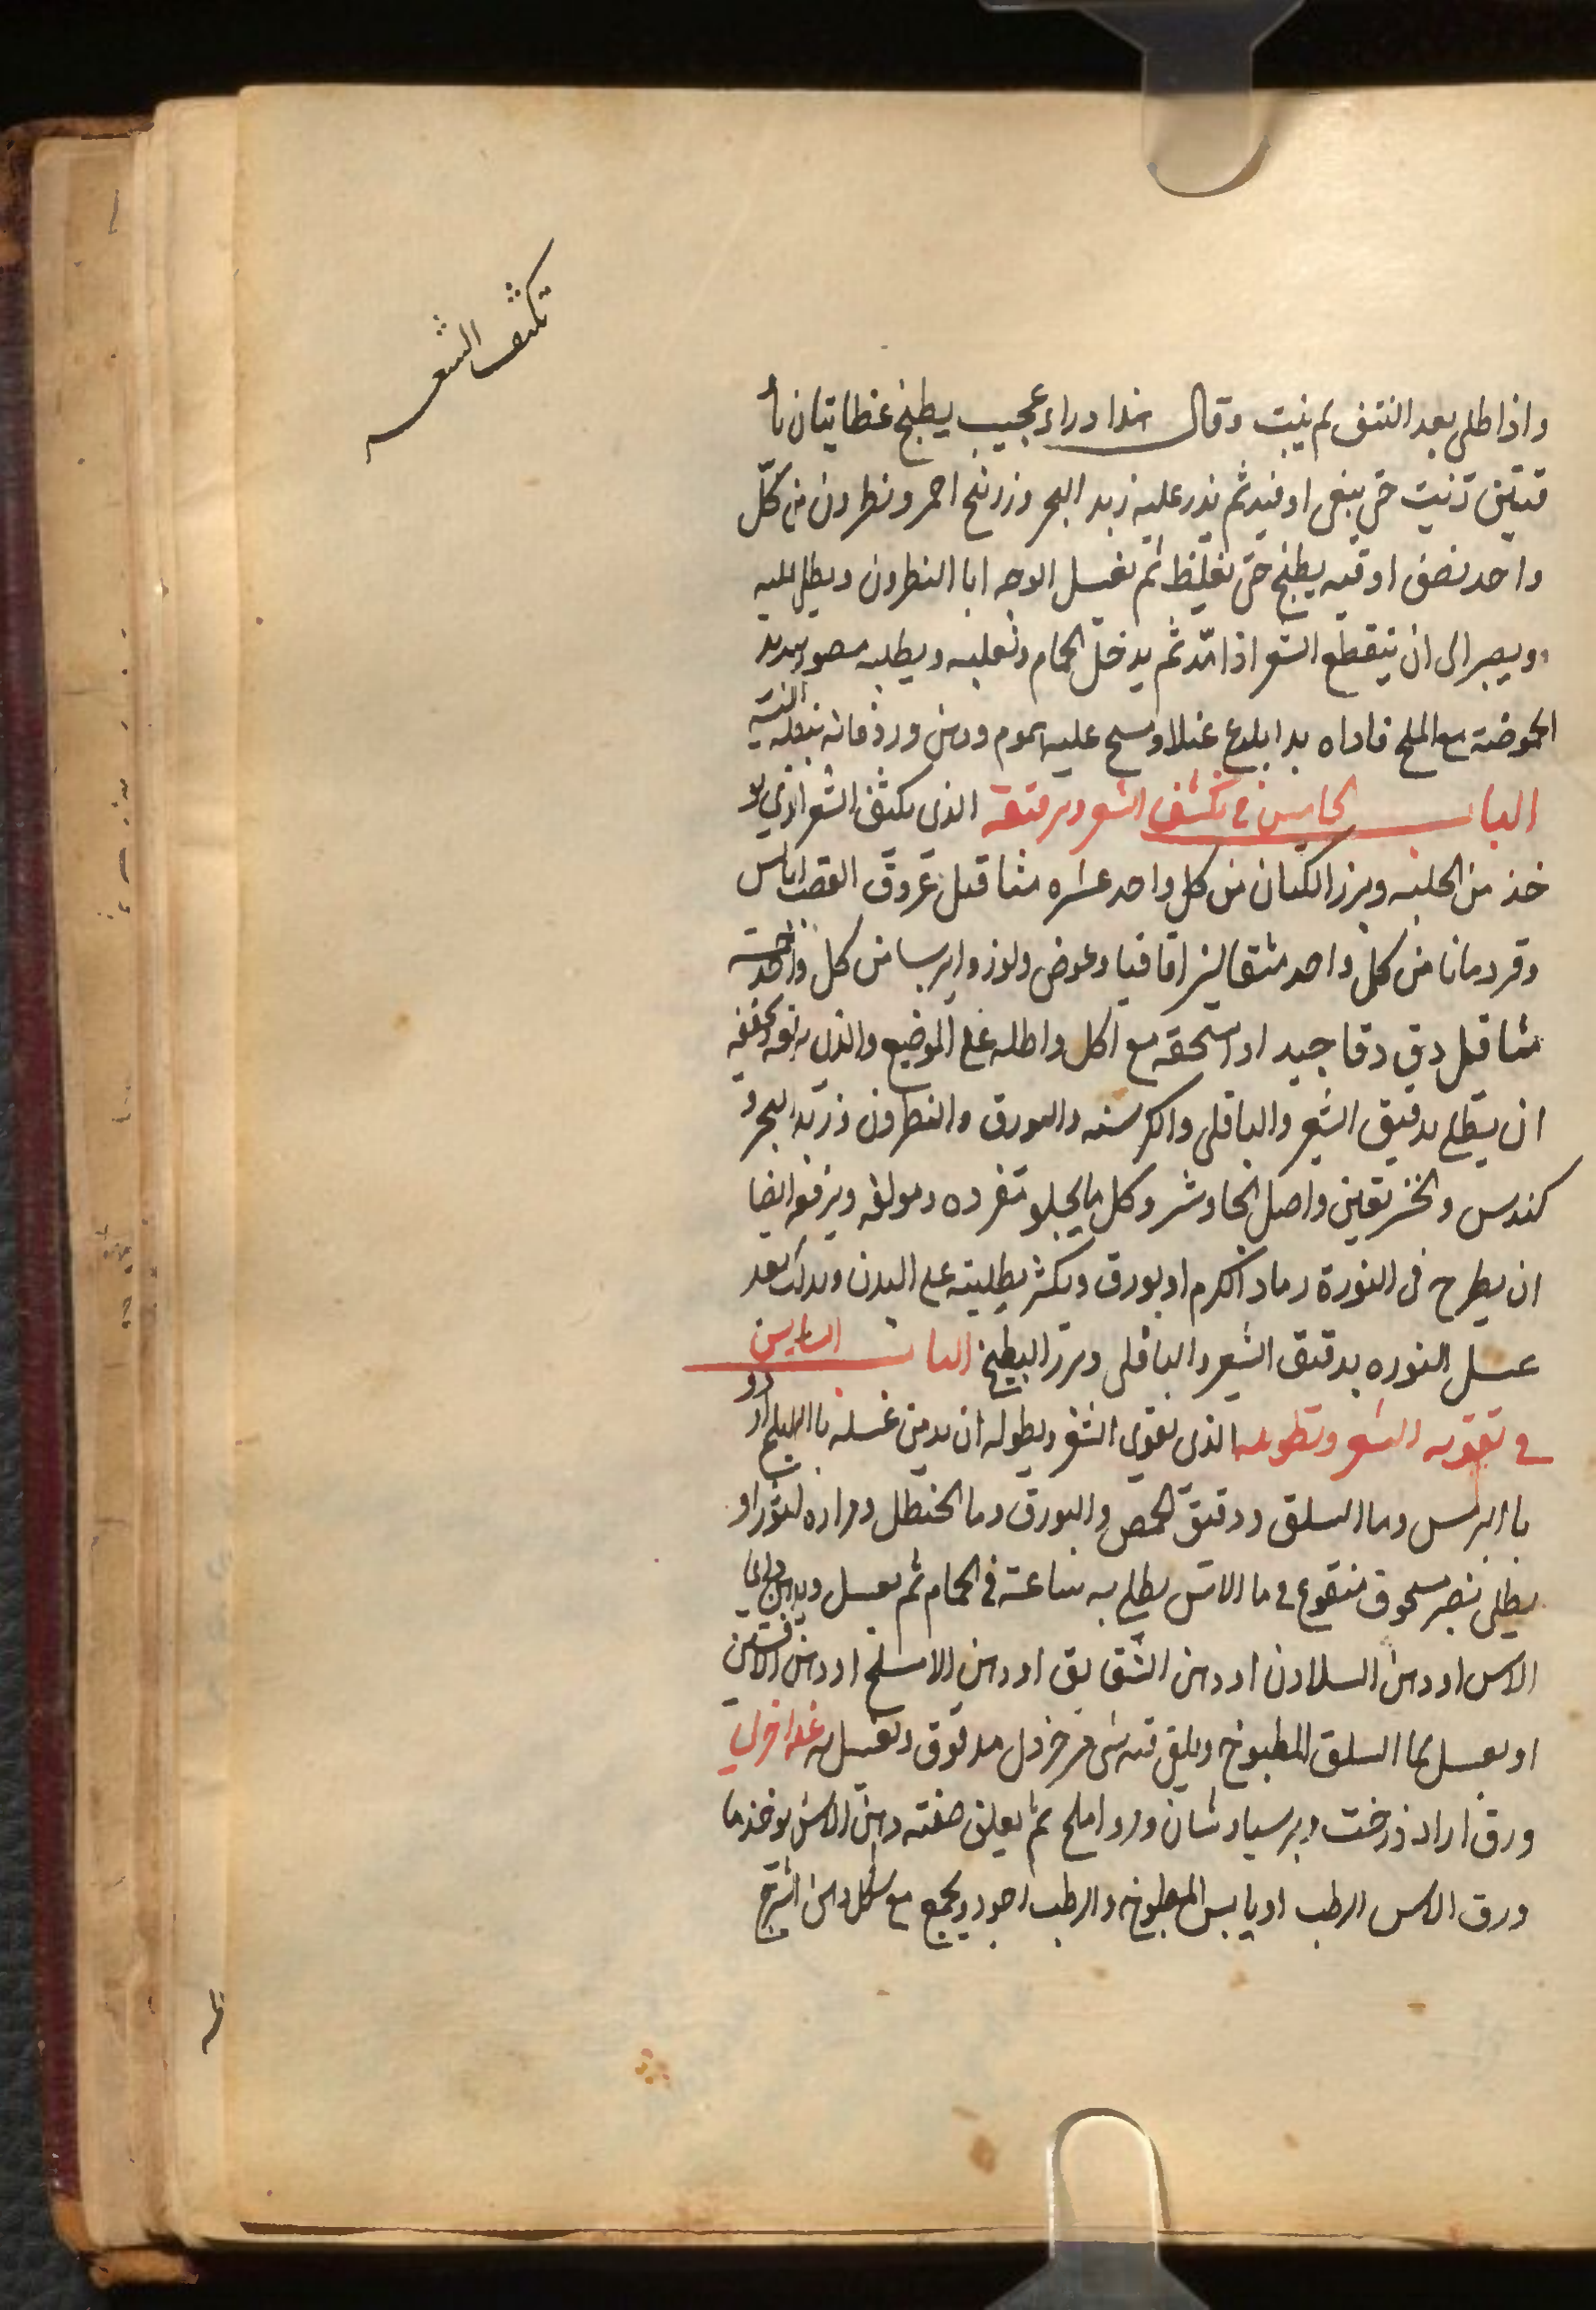 تكثف الشعر
واذا طلى بعد النتف لم ينبت وقال هذا دواء عجيب يطبخ عظايتان با
قيتين زيت حتى يبقى اوقيه ثم يذر عليه زبد البحر وزرنيخ احمر ونطرون من كل
واحد نصف اوقيه يطبخ حتى يغلظ ثم يغسل الوجه ابا النطرون ويطلى عليه
ويصبر الى ان ينقطع الشعر اذا مد ثم يدخل الحمام ويطليه
الحموضة مع الملح فاداه عليه بموم ودهن ورد فانه
الباب الخامس في تكثف الشعر وترقيقه الذي يكثف الشعر
خذ من الحلبه وبزر الكتان من كل واحد عشره مثاقيل عروق القصب
وقردمانا من كل واحد مثقالين اقاقيا وعفص ولوز وايرسا من كل واحد خمسة
مثاقيل دق دقا جيد او اسحقه مع الخل واطله على الموضع والذي يرققه ويخففه
ان يطلى بدقيق الشعير والباقلى والكرسنه والبورق والنطرون وزبد البحر و
كندس والخربقين واصل الجاوشير وكل ما يجلو مفرده ومولفه ويرققه ايضا
ان يطرح في النورة رماد الكرم او بورق ويكثر بطليته على البدن ويدلك بعد
غسل النوره بدقيق الشعير والباقلى وبزر البطيخ الباب السادس
في تقويه الشعر وتطويله الذي يقوى الشعر ويطوله ان يدمن غسله بالاملج او
بالترمس وما السلق ودقيق الحمص والبورق وما الحنظل ومراره الثور او
يطلى بصبر مسحوق منقوع في ما الاس يطلى به ساعة في الحمام ثم يغسل ويدهن
الاس او دهن اللادن او دهن الشقايق او دهن الاملج او دهن الافسنتين
او يغسل بما السلق المطبوخ ويلقى فيه شى من خردل مدقوق ويغسل به
ورق ازاد درخت وبرسياوشان ومر واملج ثم يغلى صفته دهن الاس يوخذ ما
ورق الاس الرطب او يابس المطبوخ والرطب اجود ويجمع مع شكله دهن الشيرج